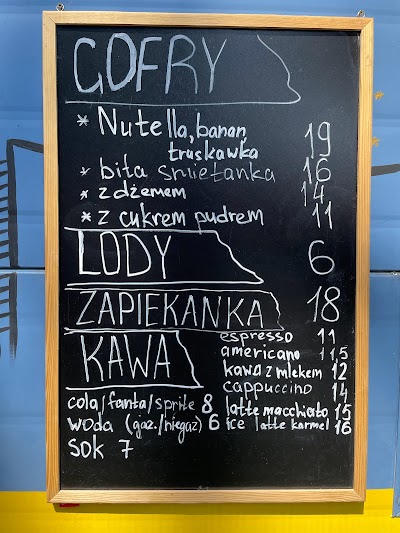 GOFRY
* Nutella, banan, truskawka 19
* bita śmietanka 16
* z dżemem 14
* z cukrem pudrem 11
LODY 6
ZAPIEKANKA 18
KAWA
espresso 11
americano 11,5
kawa z mlekem 12
cappuccino 14
cola/fanta/sprite 8 latte macchiato 15
woda (gaz./niegaz) 6 ice latte karmel 16
sok 7